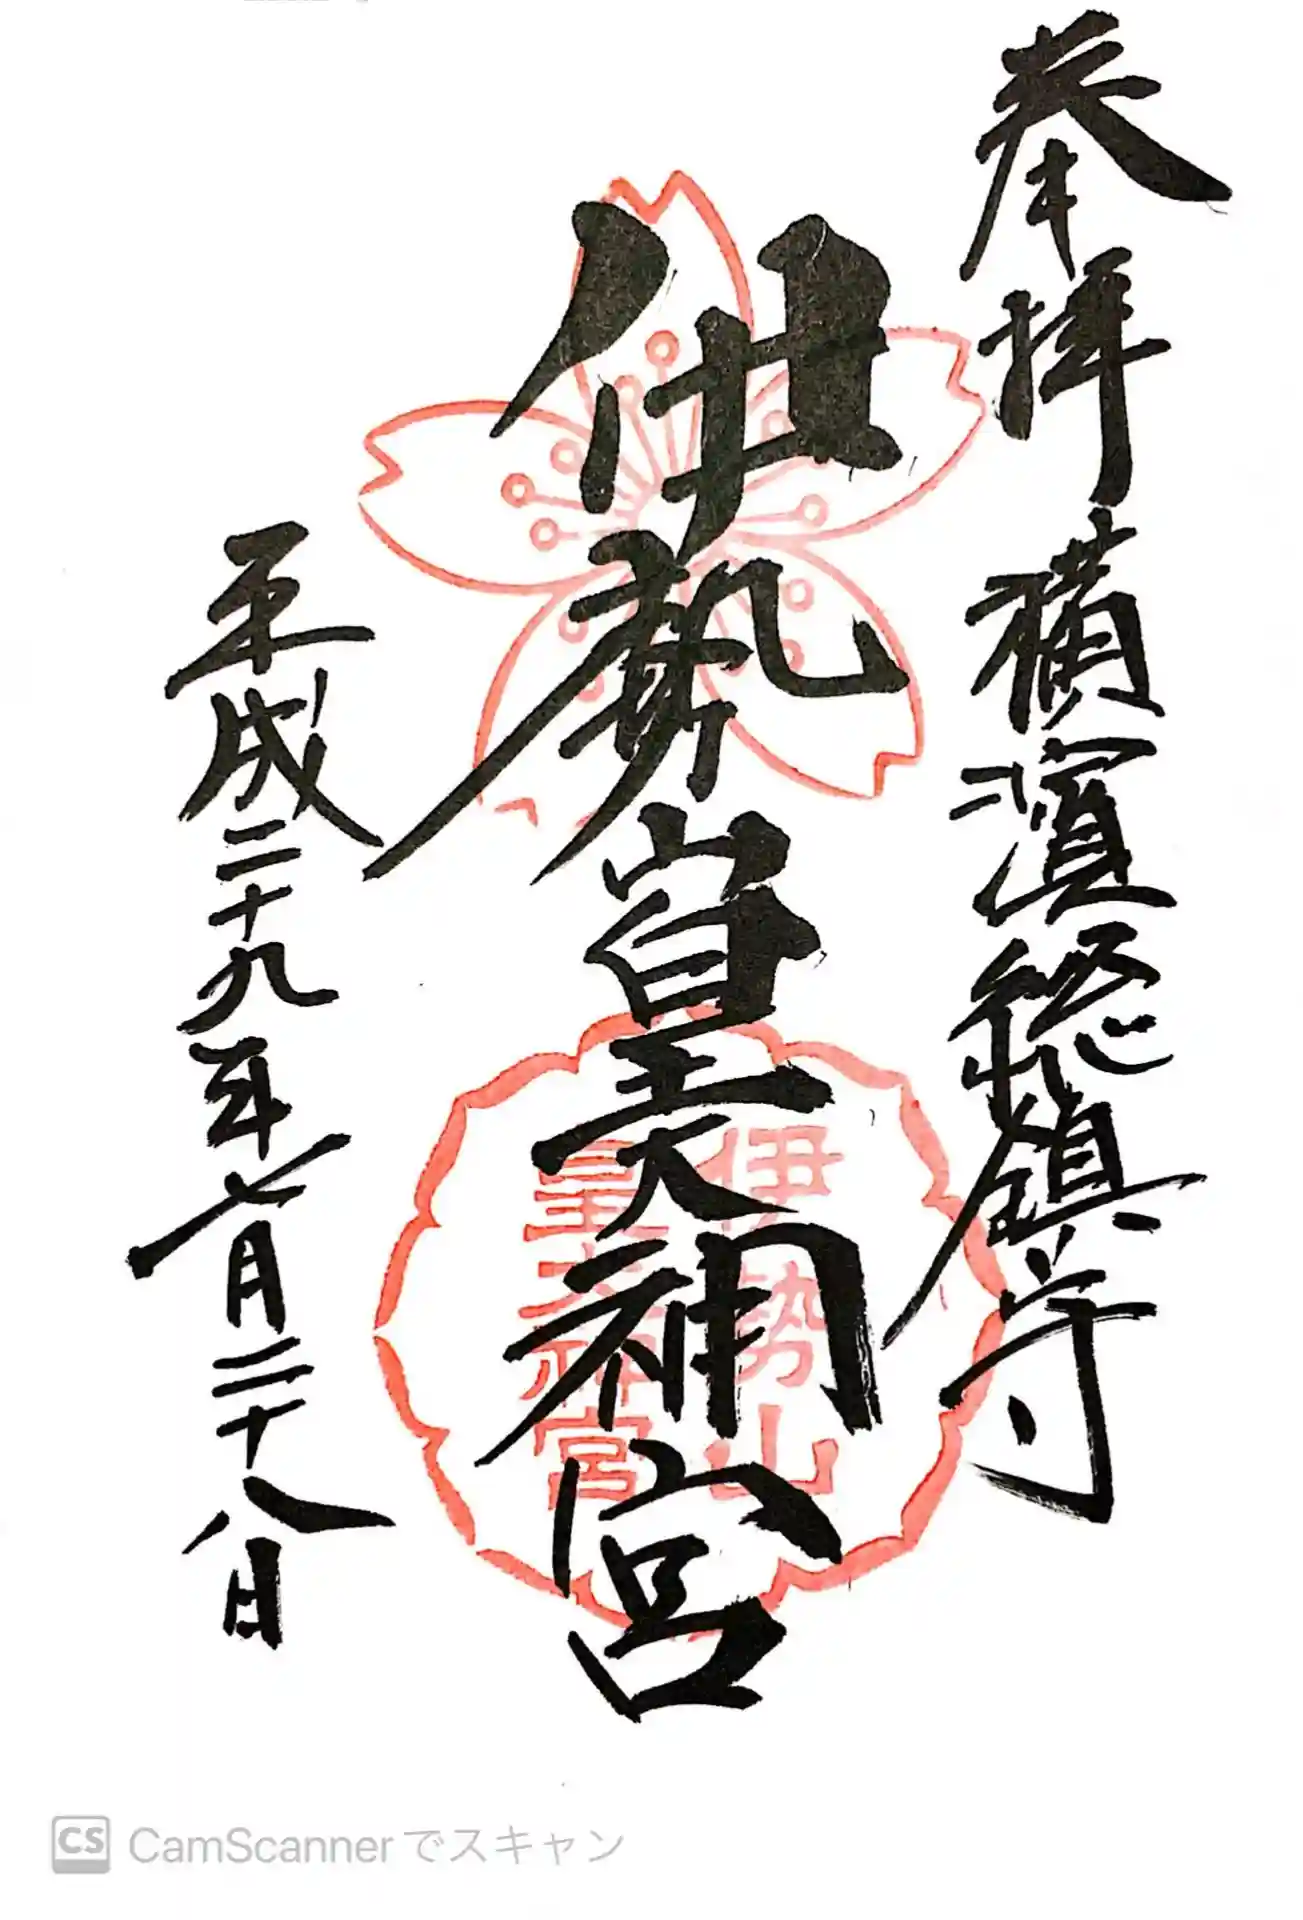 奉拝 横濱総鎮守
伊勢山皇大神宮
伊勢山
皇大神宮
平成二十九年七月二十八日
CS CamScannerでスキャン